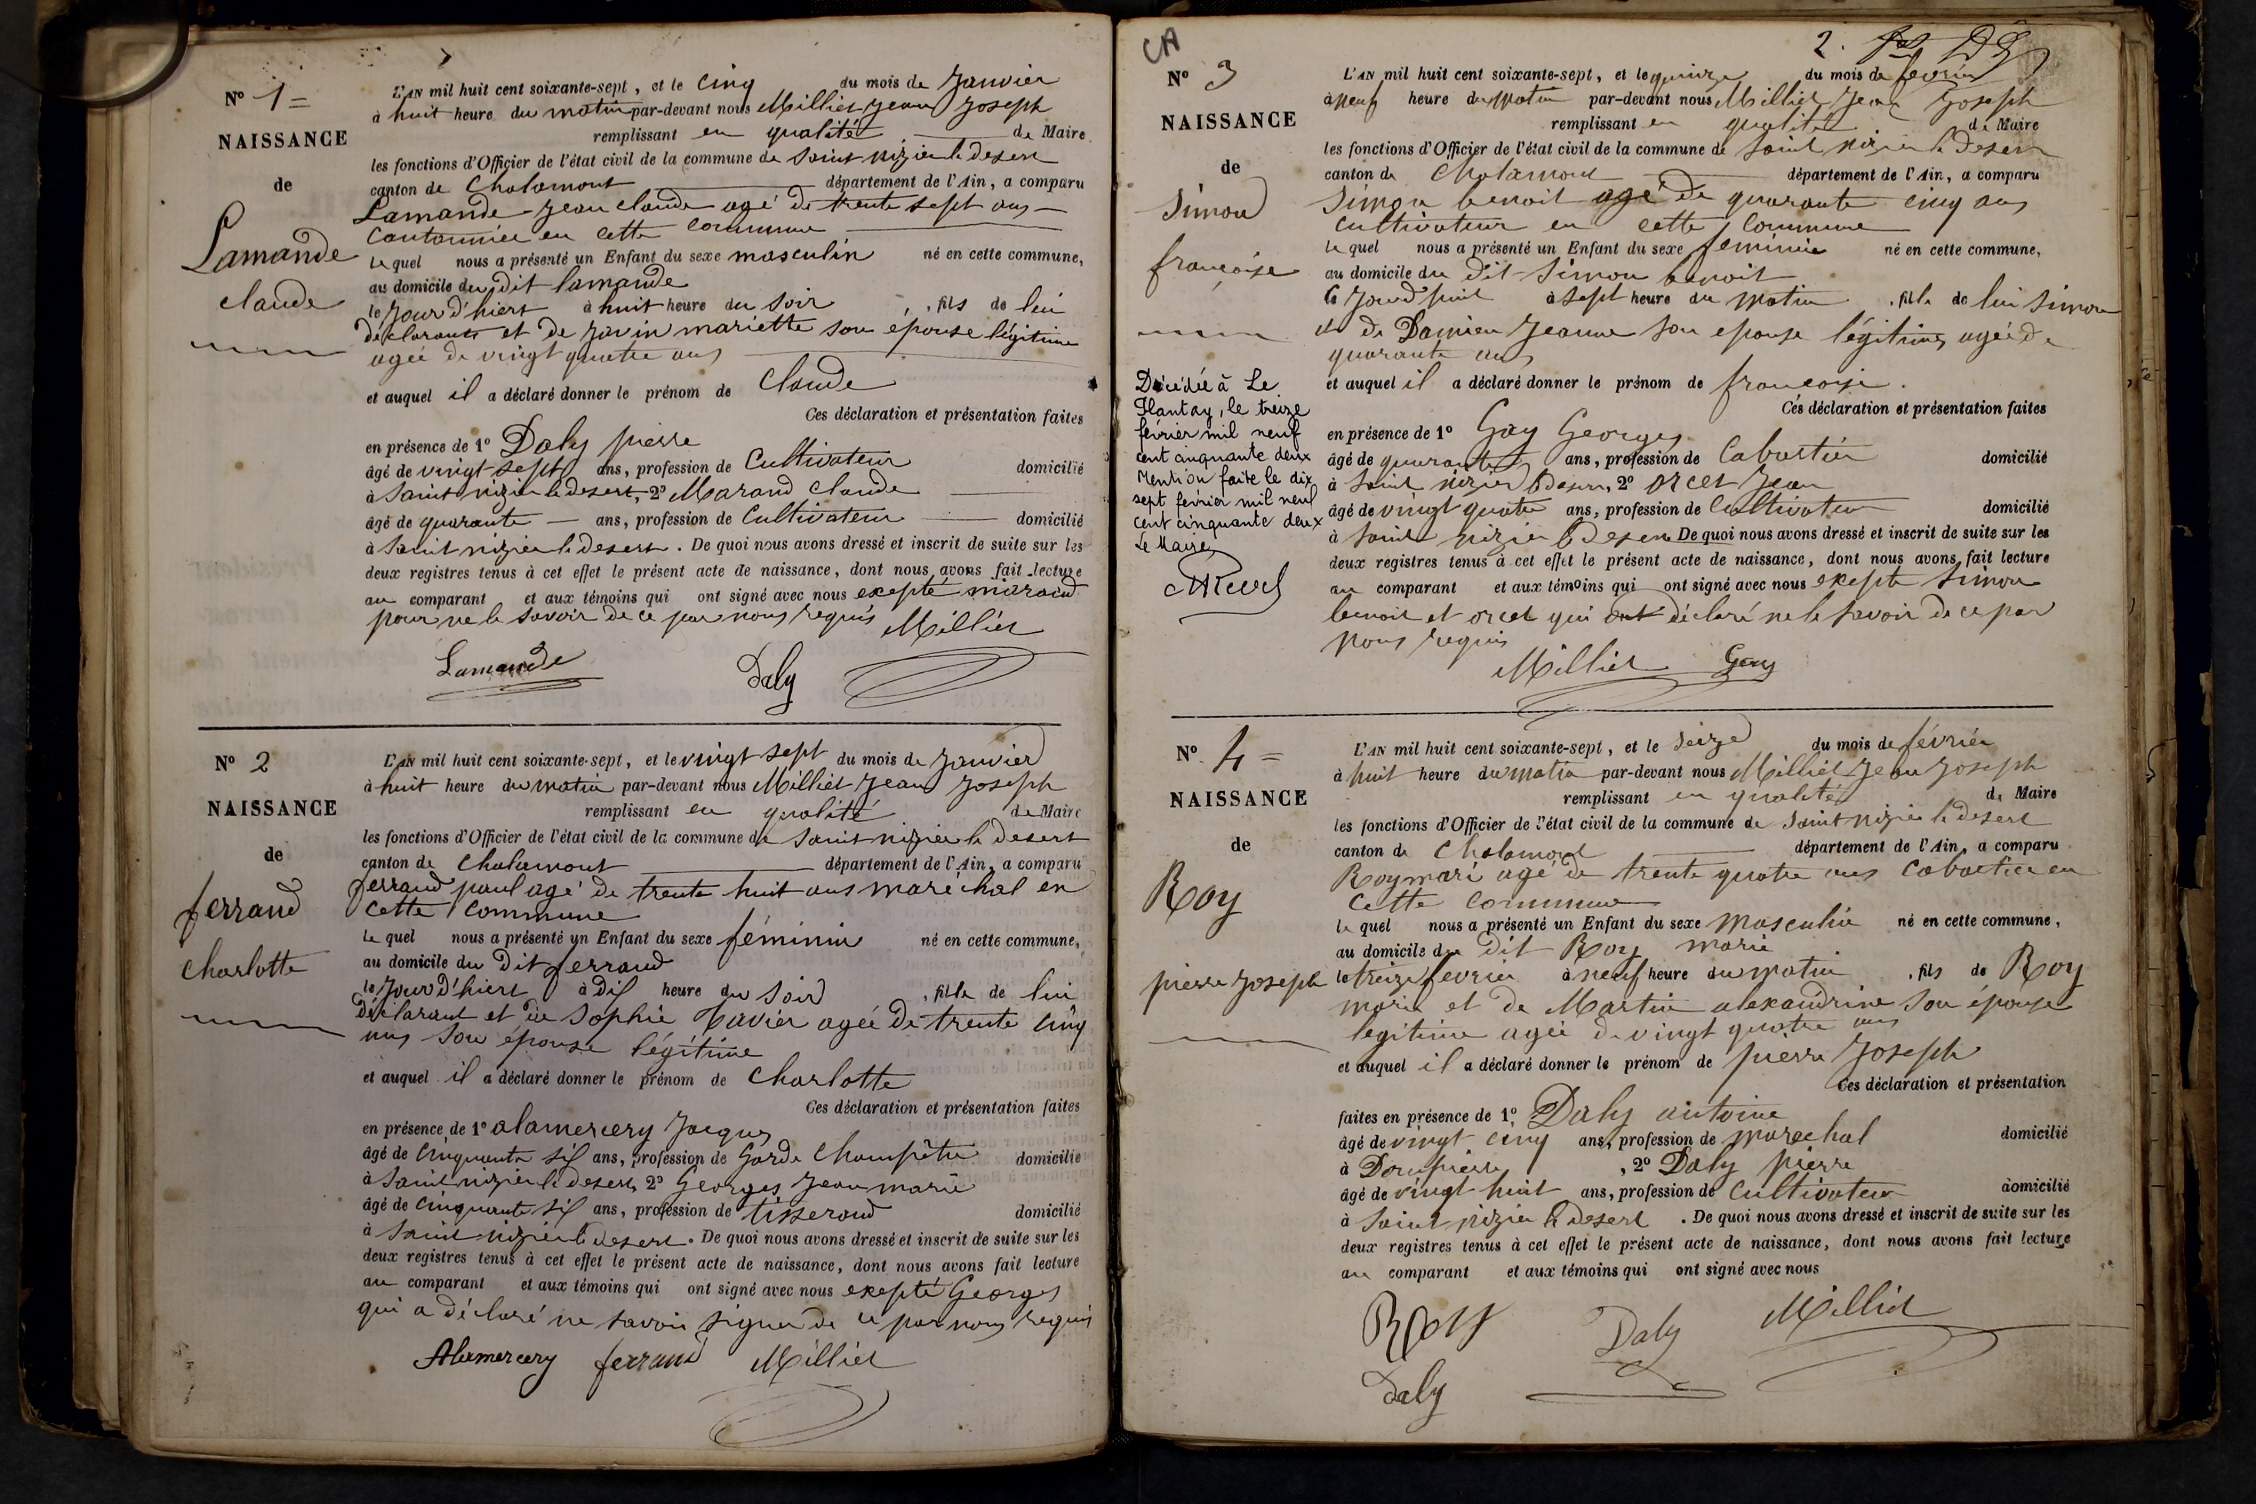 N° 1 =
NAISSANCE
de
Lamande
claude
L'AN mil huit cent soixante-sept, et le cinq du mois de Janvier
à huit heure du matin par-devant nous Milliet Jean Joseph
remplissant en qualité de Maire
les fonctions d'Officier de l'état civil de la commune de Saint nizier le desert
canton de Chalamont département de l'Ain, a comparu
Lamande Jean claude agé de trente sept ans
Cantonnier en cette commune
le quel nous a présenté un Enfant du sexe masculin né en cette commune,
au domicile du dit lamande
le Jour d'hiert à huit heure du soir, fils de lui
déclarant et de Javin mariette son épouse légitime
agée de vingt quatre ans
et auquel il a déclaré donner le prénom de Claude
Ces déclaration et présentation faites
en présence de 1° Daly pierre
âgé de vingt sept ans, profession de Cultivateur domicilié
à Saint nizier le desert, 2° Marand Claude
âgé de quarante ans, profession de Cultivateur domicilié
à Saint nizier le desert. De quoi nous avons dressé et inscrit de suite sur les
deux registres tenus à cet effet le présent acte de naissance, dont nous avons fait lecture
au comparant et aux témoins qui ont signé avec nous excepté marand
pour ne le savoir de ce par nous requis Milliet
Lamande Daly
N° 2
NAISSANCE
de
ferrand
charlotte
L'AN mil huit cent soixante-sept, et le vingt sept du mois de Janvier
à huit heure du matin par-devant nous Milliet Jean Joseph
remplissant en qualité de Maire
les fonctions d'Officier de l'état civil de la commune de Saint nizier le desert
canton de Chalamont département de l'Ain, a comparu
ferrand paul agé de trente huit ans maréchal en
cette commune
le quel nous a présenté un Enfant du sexe féminin né en cette commune,
au domicile du Dit ferrand
le Jour d'hiert à dix heure du soir, fille de lui
déclarant et de Sophie Xavier agée de trente cinq
ans son épouse légitime
et auquel il a déclaré donner le prénom de charlotte
Ces déclaration et présentation faites
en présence de 1° alamercery Jacques
âgé de cinquante six ans, profession de Garde Champêtre domicilié
à Saint nizier le desert, 2° Georges Jean marie
âgé de cinquante six ans, profession de tisserand domicilié
à Saint nizier le desert. De quoi nous avons dressé et inscrit de suite sur les
deux registres tenus à cet effet le présent acte de naissance, dont nous avons fait lecture
au comparant et aux témoins qui ont signé avec nous exepté Georges
qui a déclaré ne savoir signer de ce par nous requis
Alamercery ferrand Milliet
CA
2.
N° 3
NAISSANCE
de
Simon
françoise
Décédée à Le
Plantay, le treize
février mil neuf
cent cinquante deux
Mention faite le dix
sept février mil neuf
cent cinquante deux
Le Maire,
L'AN mil huit cent soixante-sept, et le quinze du mois de fevrier
à neuf heure du matin par-devant nous Milliet Jean Joseph
remplissant en qualité de Maire
les fonctions d'Officier de l'état civil de la commune de Saint nizier le desert
canton de Chalamont département de l'Ain, a comparu
Simon benoit agé de quarante cinq ans
cultivateur en cette commune
le quel nous a présenté un Enfant du sexe feminin né en cette commune,
au domicile du dit Simon benoit
ce Jourd'huit à sept heure du matin, fille de lui Simon
et de Damien Jeanne son epouse légitime, agée de
quarante ans
et auquel il a déclaré donner le prénom de francoise.
Ces déclaration et présentation faites
en présence de 1° Gay Georges
âgé de quarante ans, profession de Cabartier domicilié
à Saint nizier le Desert, 2° orcet Jean
âgé de vingt quatre ans, profession de Cultivateur domicilié
à Saint nizier le Desert De quoi nous avons dressé et inscrit de suite sur les
deux registres tenus à cet effet le présent acte de naissance, dont nous avons fait lecture
au comparant et aux témoins qui ont signé avec nous exepte Simon
benoit et orcet qui ont déclaré ne le savoir de ce par
nous requis
Milliet Gay
N° 4 =
NAISSANCE
de
Roy
pierre Joseph
L'AN mil huit cent soixante-sept, et le seize du mois de février
à huit heure du matin par-devant nous Milliet Jean Joseph
remplissant en qualité de Maire
les fonctions d'Officier de l'état civil de la commune de Saint nizier le desert
canton de Chalamont département de l'Ain, a comparu
Roy mari agé de trente quatre ans cabartier en
cette commune
le quel nous a présenté un Enfant du sexe masculin né en cette commune,
au domicile du dit Roy marie
le treize fevrier à neuf heure du matin, fils de Roy
marie et de Martin alexandrine son épouse
legitime agée de vingt quatre ans
et auquel il a déclaré donner le prénom de pierre Joseph
Ces déclaration et présentation
faites en présence de 1° Daly antoine
âgé de vingt cinq ans, profession de marechal domicilié
à Dompierre, 2° Daly pierre
âgé de vingt huit ans, profession de cultivateur domicilié
à Saint nizier le desert. De quoi nous avons dressé et inscrit de suite sur les
deux registres tenus à cet effet le présent acte de naissance, dont nous avons fait lecture
au comparant et aux témoins qui ont signé avec nous
Roy Daly Milliet
Daly